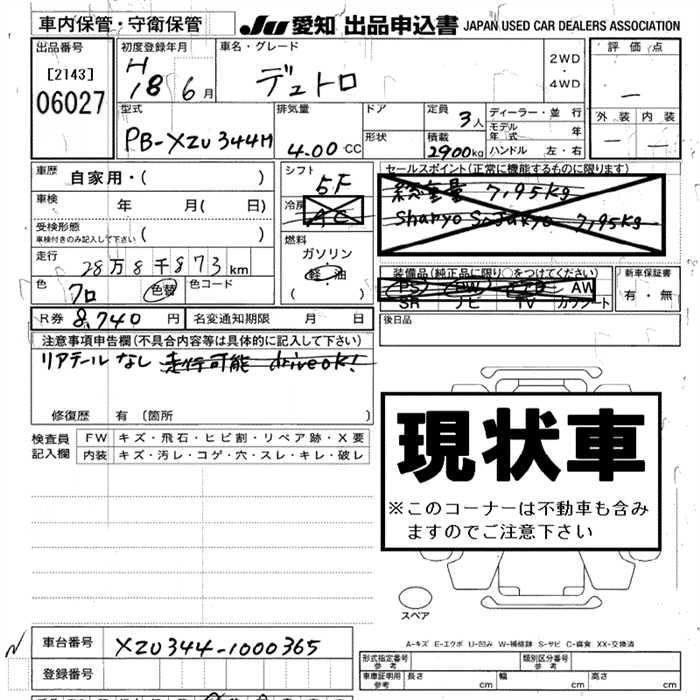 車内保管・守衛保管 JU 愛知 出品申込書 JAPAN USED CAR DEALERS ASSOCIATION
出品番号 初度登録年月 車名・グレード 2WD・4WD 評価点
[2143] H デュトロ
06027 18 6月 —
型式 排気量 ドア 定員 3人 ディーラー・並行 外装 内装
形状 積載 モデル年式 年
PB-XZU344M 4.00 CC 2900kg ハンドル 左・右 — —
車歴 自家用・( ) シフト 5F セールスポイント(正常に機能するものに限ります)
車検 年 月( 日) 冷房 AC 総重量 7,95kg
受検形態 ( ) 7,95kg
車検付きのみ記入して下さい 燃料
走行 28万8千873km ガソリン 装備品(純正品に限り○をつけてください) 新車保証書
色 クロ 色替 色コード 軽・油 PS PW AW 有・無
( ) SR ナビ TV カワシート
R券 8,740円 名変通知期限 月 日 後日品
注意事項申告欄(不具合内容等は具体的に記入して下さい)
リアテールなし 走行可能 driveok!
修復歴 有 (箇所 )
検査員記入欄 FW キズ・飛石・ヒビ割・リペア跡・X要
内装 キズ・汚レ・コゲ・穴・スレ・キレ・破レ
現状車
※このコーナーは不動車も含み
ますのでご注意下さい
スペア
A-キズ E-エクボ U-凹み W-補修跡 S-サビ C-腐食 XX-交換済
車台番号 XZU344-1000365 形式指定番号 参考 類別区分番号 参考
登録番号 車庫証明用 参考 長さ cm 幅 cm 高さ cm